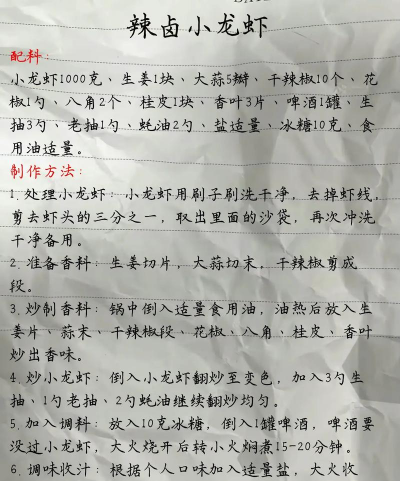 辣卤小龙虾
配料:
小龙虾1000克、生姜1块、大蒜5瓣、干辣椒10个、花
椒1勺、八角2个、桂皮1块、香叶3片、啤酒1罐、生
抽3勺、老抽1勺、蚝油2勺、盐适量、冰糖10克、食
用油适量。
制作方法:
1. 处理小龙虾: 小龙虾用刷子刷洗干净, 去掉虾线,
剪去虾头的三分之一, 取出里面的沙袋, 再次冲洗
干净备用。
2. 准备香料: 生姜切片, 大蒜切末, 干辣椒剪成
段。
3. 炒制香料: 锅中倒入适量食用油, 油热后放入生
姜片、蒜末、干辣椒段、花椒、八角、桂皮、香叶
炒出香味。
4. 炒小龙虾: 倒入小龙虾翻炒至变色, 加入3勺生
抽、1勺老抽、2勺蚝油继续翻炒均匀。
5. 加入调料: 放入10克冰糖, 倒入1罐啤酒, 啤酒要
没过小龙虾, 大火烧开后转小火焖煮15-20分钟。
6. 调味收汁: 根据个人口味加入适量盐, 大火收